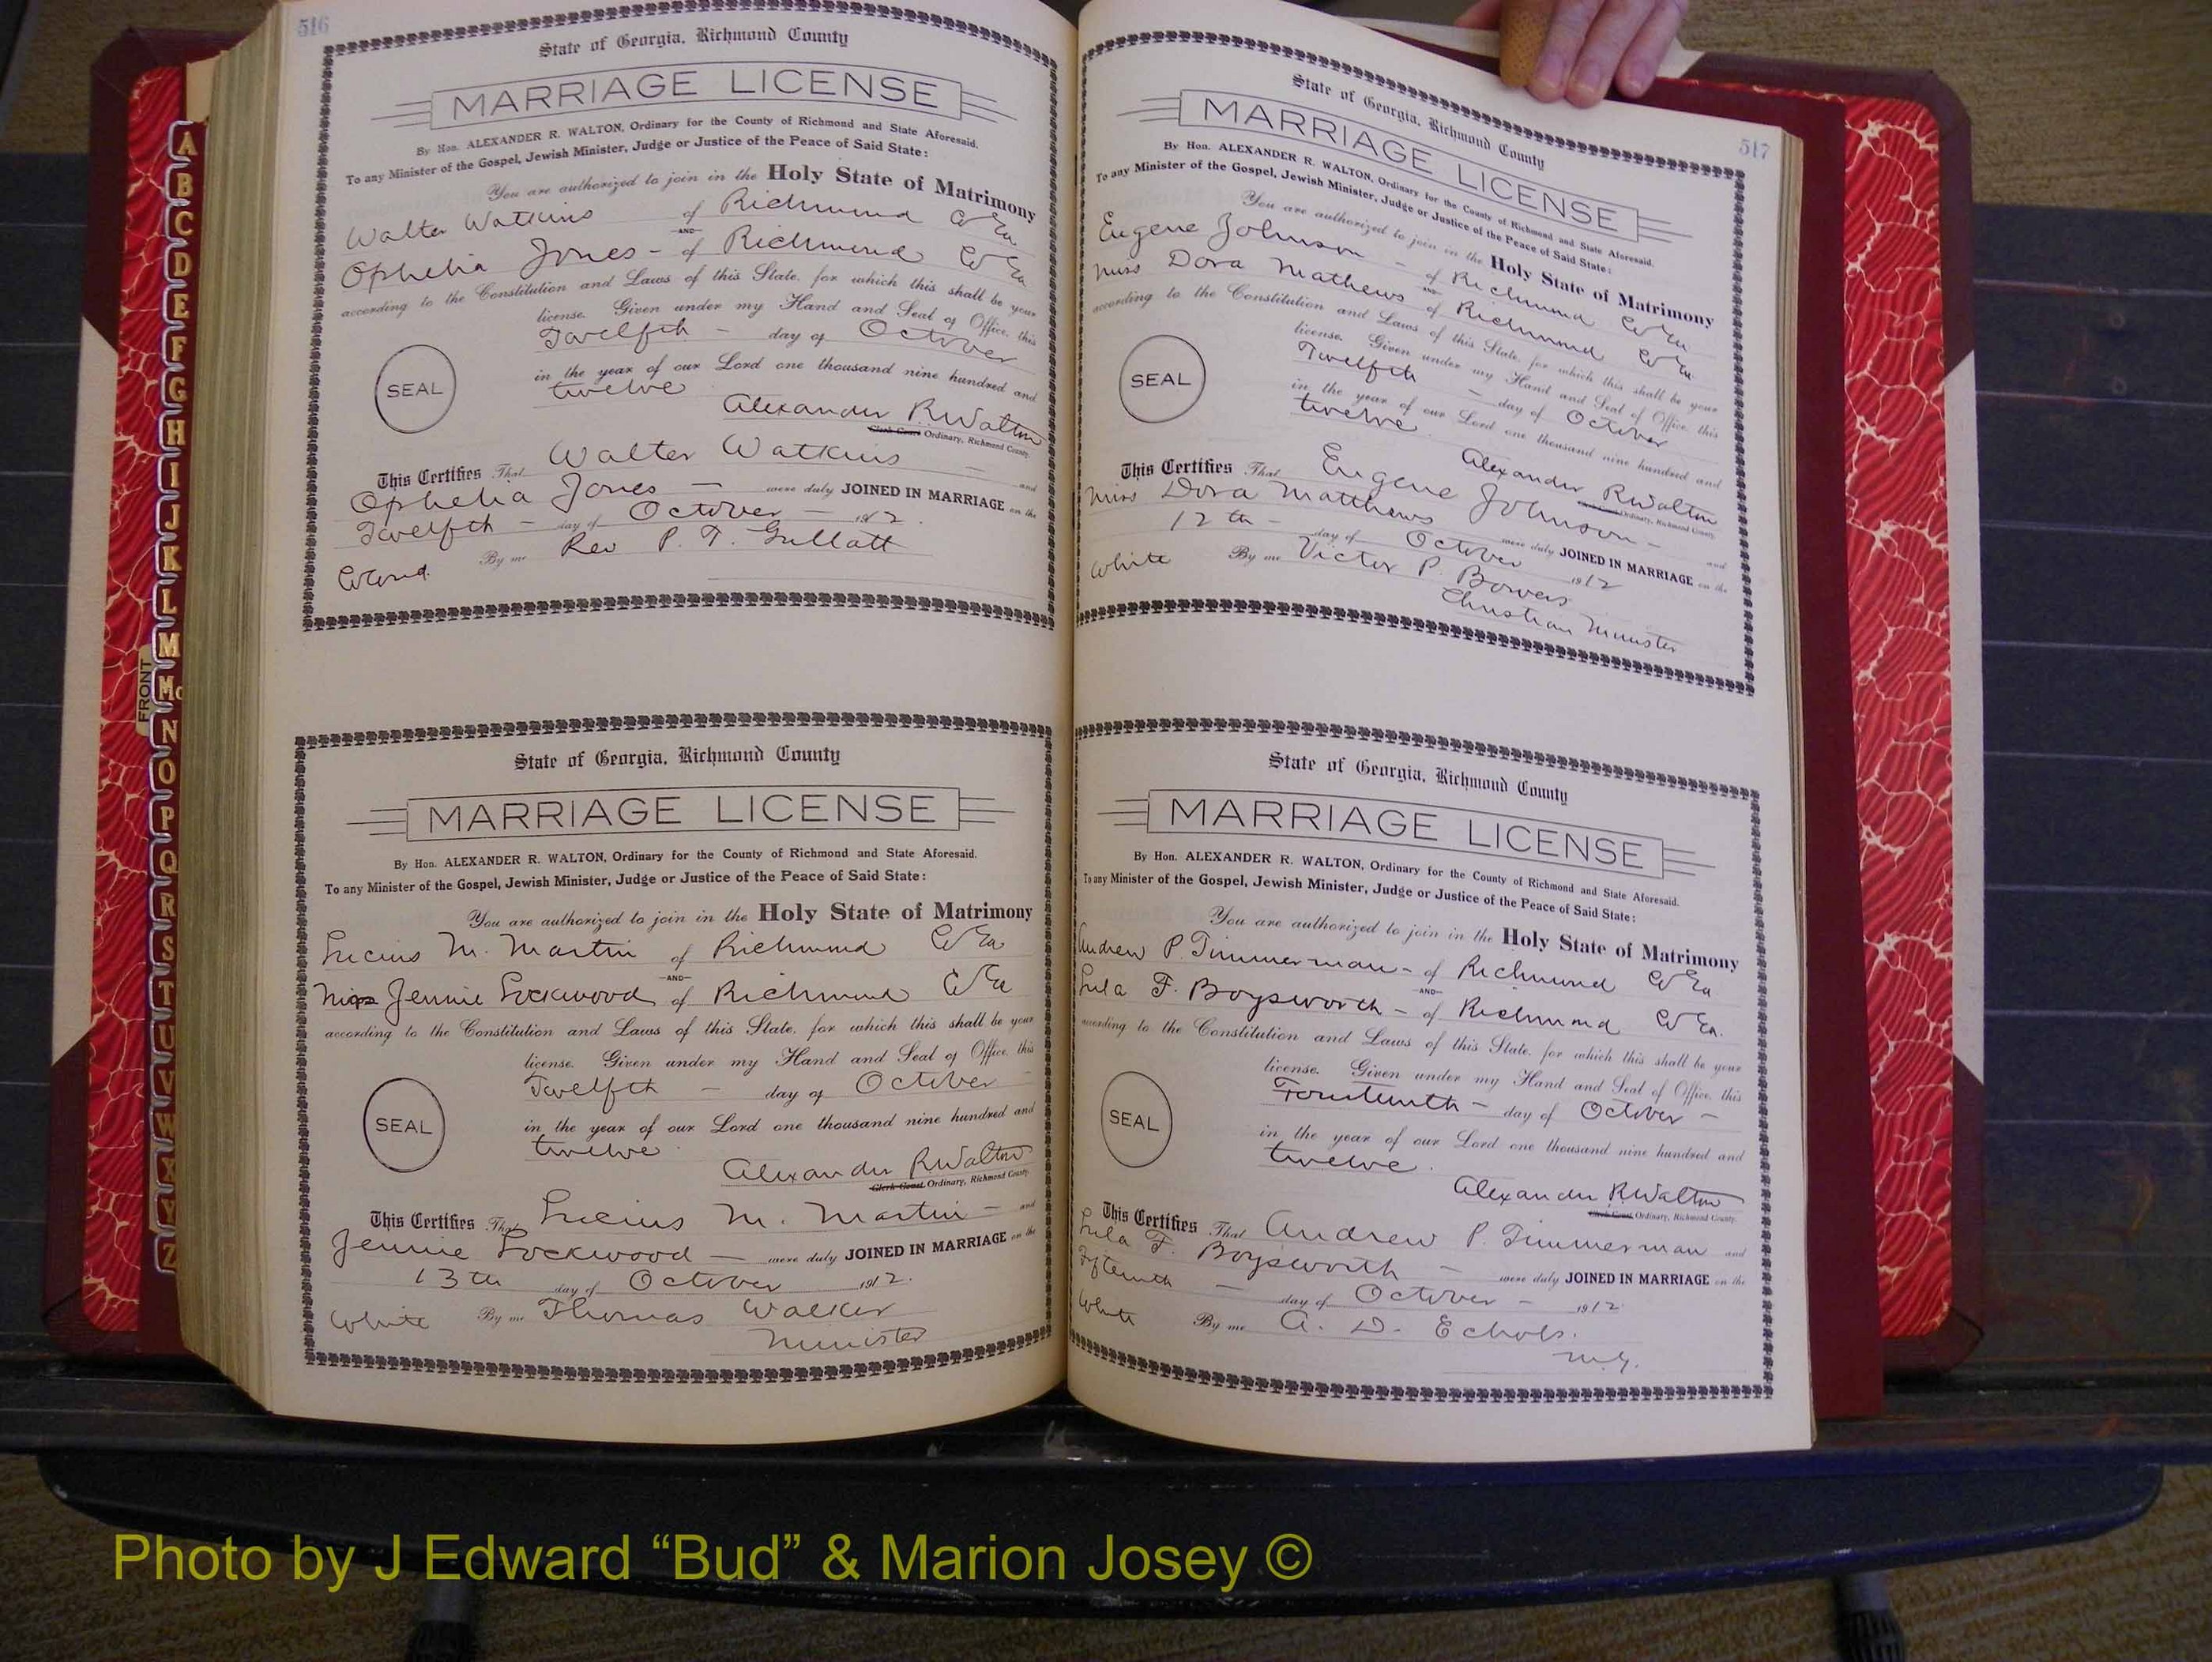 516
State of Georgia, Richmond County
MARRIAGE LICENSE
By Hon. ALEXANDER R. WALTON, Ordinary for the County of Richmond and State Aforesaid.
To any Minister of the Gospel, Jewish Minister, Judge or Justice of the Peace of Said State:
You are authorized to join in the Holy State of Matrimony
Walter Watkins of Richmond Co Ga
AND
Ophelia Jones - of Richmond Co Ga
according to the Constitution and Laws of this State, for which this shall be your
license. Given under my Hand and Seal of Office, this
Twelfth - day of October
in the year of our Lord one thousand nine hundred and
SEAL
twelve
Alexander R. Walton
Clerk Court Ordinary, Richmond County.
This Certifies That Walter Watkins - and
Ophelia Jones - were duly JOINED IN MARRIAGE on the
Twelfth - day of October - 1912.
By me Rev P. T. Gullatt
Colord.
State of Georgia, Richmond County
MARRIAGE LICENSE
By Hon. ALEXANDER R. WALTON, Ordinary for the County of Richmond and State Aforesaid.
To any Minister of the Gospel, Jewish Minister, Judge or Justice of the Peace of Said State:
You are authorized to join in the Holy State of Matrimony
Lucius M. Martin of Richmond Co Ga
AND
Miss Jennie Lockwood of Richmond Co Ga
according to the Constitution and Laws of this State, for which this shall be your
license. Given under my Hand and Seal of Office, this
Twelfth - day of October
SEAL
in the year of our Lord one thousand nine hundred and
twelve.
Alexander R. Walton
Clerk Court Ordinary, Richmond County.
This Certifies That Lucius M. Martin - and
Jennie Lockwood - were duly JOINED IN MARRIAGE on the
13th day of October 1912.
White By me Thomas Walker
Minister
517
State of Georgia, Richmond County
MARRIAGE LICENSE
By Hon. ALEXANDER R. WALTON, Ordinary for the County of Richmond and State Aforesaid.
To any Minister of the Gospel, Jewish Minister, Judge or Justice of the Peace of Said State:
You are authorized to join in the Holy State of Matrimony
Eugene Johnson - of Richmond Co Ga
AND
Miss Dora Mathews of Richmond Co Ga.
according to the Constitution and Laws of this State, for which this shall be your
license. Given under my Hand and Seal of Office, this
Twelfth - day of October
SEAL
in the year of our Lord one thousand nine hundred and
twelve.
Alexander R. Walton
Clerk Court Ordinary, Richmond County.
This Certifies That Eugene Johnson - and
Miss Dora Matthews were duly JOINED IN MARRIAGE on the
12th - day of October 1912
White By me Victor P. Bowers
Christian Minister
State of Georgia, Richmond County
MARRIAGE LICENSE
By Hon. ALEXANDER R. WALTON, Ordinary for the County of Richmond and State Aforesaid.
To any Minister of the Gospel, Jewish Minister, Judge or Justice of the Peace of Said State:
You are authorized to join in the Holy State of Matrimony
Andrew P. Timmerman - of Richmond Co Ga
AND
Lula F. Boysworth - of Richmond Co Ga.
according to the Constitution and Laws of this State, for which this shall be your
license. Given under my Hand and Seal of Office, this
Fourteenth - day of October -
SEAL
in the year of our Lord one thousand nine hundred and
twelve.
Alexander R. Walton
Clerk Court Ordinary, Richmond County.
This Certifies That Andrew P. Timmerman and
Lula F. Boysworth - were duly JOINED IN MARRIAGE on the
Fifteenth - day of October - 1912
White By me A. D. Echols.
M.G.
A
B
C
D
E
F
G
H
I
J
K
L
M
Mc
N
O
P
Q
R
S
T
U
V
W
X
Y
Z
FRONT
Photo by J Edward “Bud” & Marion Josey ©